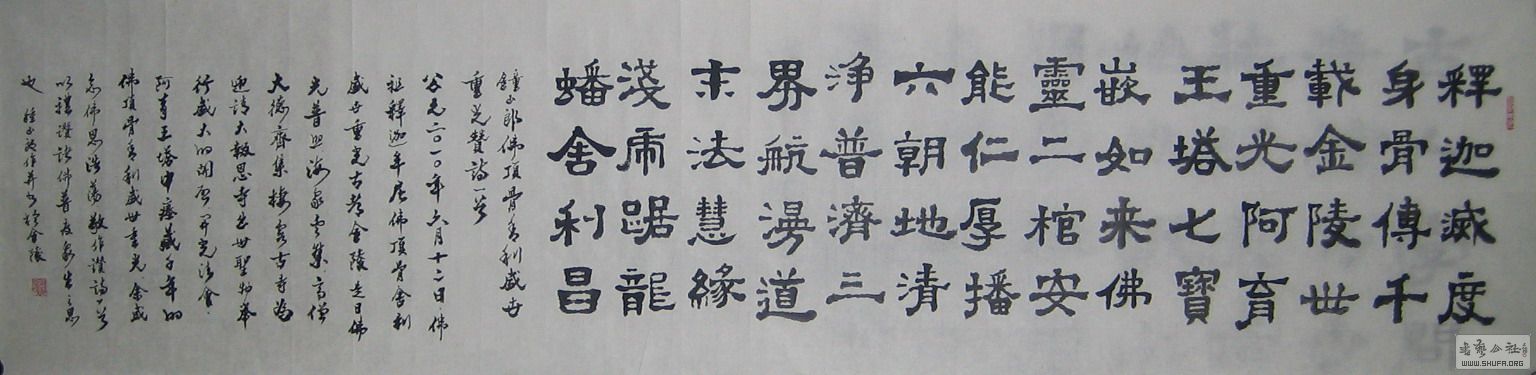 釋迦滅度
身骨傳千
載金陵世
重光阿育
王塔七寶
嵌如来佛
靈二棺安
能仁厚播
六朝地清
淨普濟三
界航漫道
末法慧緣
淺虎踞龍
蟠舍利昌
佛頂骨舍利盛世
重光赞詩一首
公元二〇一〇年六月十二日佛
祖釋迦牟尼佛頂骨舍利
盛世重光古都金陵是日佛
光普照海眾雲集高僧
大德齊集棲霞古寺為
迎請大報恩寺出世聖物舉
行盛大的開啓開光法會
阿育王塔中瘞藏千年的
佛頂骨舍利盛世重光余感
念佛恩浩蕩敬作讚詩一首
以禮讚諸佛普度眾生之恩
也 作并書於金陵
書藝公社
WWW.SHUFA.ORG